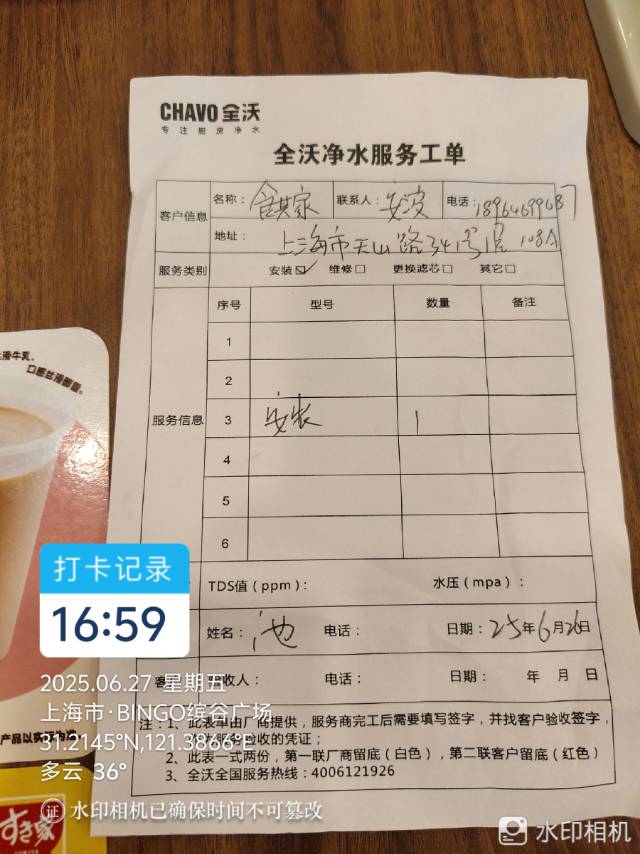 CHAVO 全沃
专注厨房净水
全沃净水服务工单
客户信息 名称： 食其家 联系人： 安波 电话：
地址： 上海市天山路341号1层108A
服务类别 安装☑ 维修□ 更换滤芯□ 其它□
服务信息 序号 型号 数量 备注
1
2
3 安装 1
4
5
6
TDS值（ppm）： 水压（mpa）：
姓名： 池 电话： 日期： 25年6月26日
客 收人： 电话： 日期： 年 月 日
注：1、此表单由厂商提供，服务商完工后需要填写签字，并找客户验收签字，
验收的凭证；
2、此表一式两份，第一联厂商留底（白色），第二联客户留底（红色）
3、全沃全国服务热线：4006121926
丝滑牛乳，
口感丝滑醇香。
产品以实际为准
すき家
打卡记录
16:59
2025.06.27 星期五
上海市·BINGO缤谷广场
31.2145°N,121.3866°E
多云 36°
证 水印相机已确保时间不可篡改
水印相机